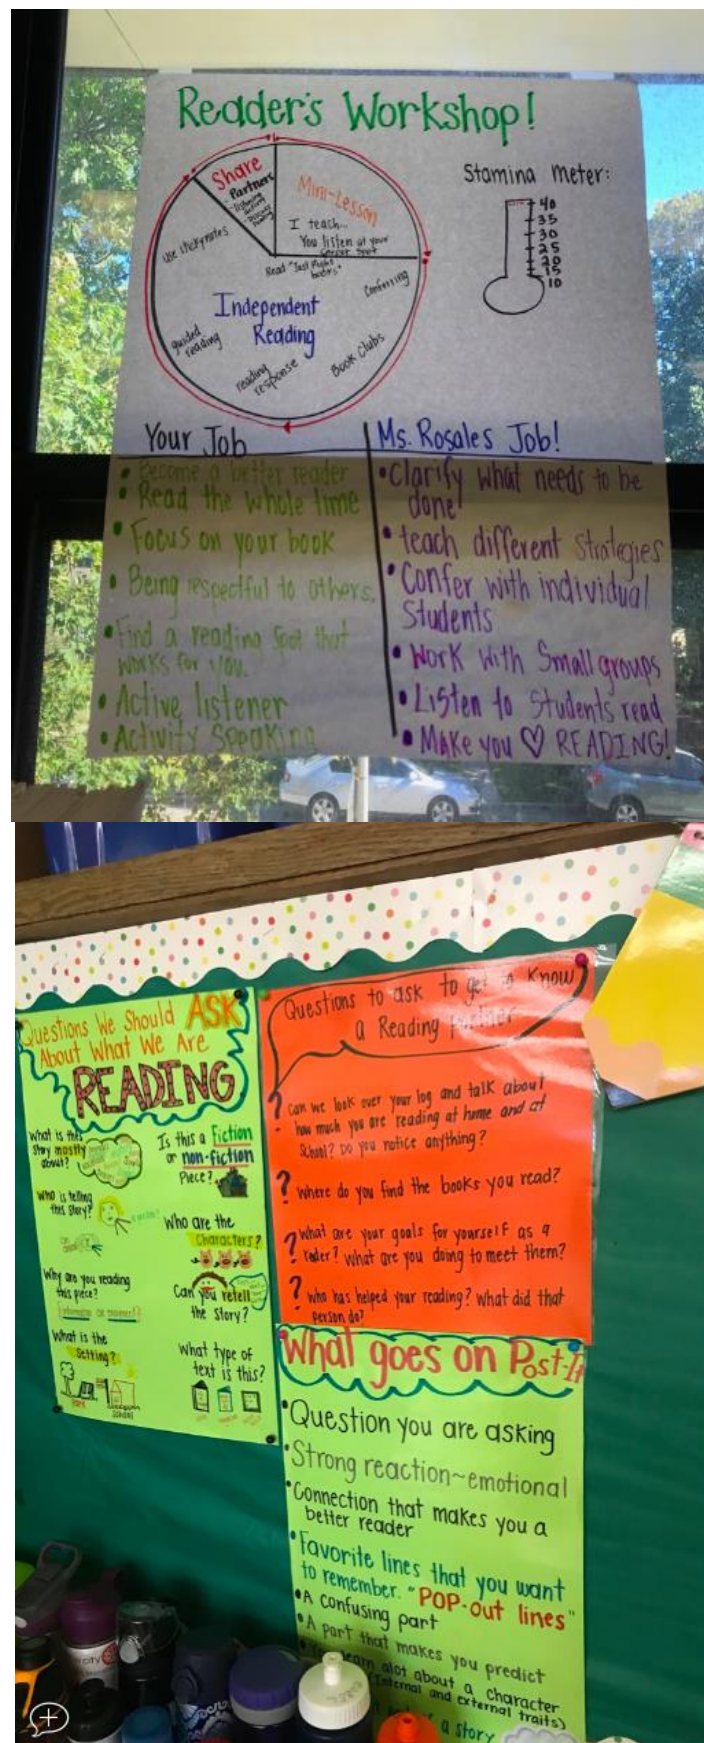 Reader's Workshop!
Share
Partners
Mini-Lesson
I teach...
You listen at your
Use stickynotes
Read "Just Right
books"
Conferring
Independent
Reading
guided
reading
reading
response
Book Clubs
Stamina meter:
40
35
30
25
20
15
10
Your Job
• Become a better reader
• Read the whole time
• Focus on your book
• Being respectful to others.
• Find a reading spot that
works for you.
• Active listener
• Activity Speaking
Ms. Rosales Job!
• Clarify what needs to be
done
• teach different strategies
• Confer with individual
Students
• Work with Small groups
• Listen to Students read
• Make you ♡ READING!
Questions We Should ASK
About What We Are
READING
What is this
story mostly
about?
Is this a Fiction
or non-fiction
Piece?
Who is telling
this story?
Who are the
Characters?
Why are you reading
this piece?
Can you retell
the story?
What is the
Setting?
What type of
text is this?
Park
School
Questions to ask to get to Know
a Reading Partner
? Can we look over your log and talk about
how much you are reading at home and at
School? Do you notice anything?
? Where do you find the books you read?
? What are your goals for yourself as a
reader? What are you doing to meet them?
? Who has helped your reading? What did that
person do?
What goes on Post-It
• Question you are asking
• Strong reaction~emotional
• Connection that makes you a
better reader
• Favorite lines that you want
to remember. "POP-out lines"
• A confusing part
• A part that makes you predict
learn alot about a character
(Internal and external traits)
a story